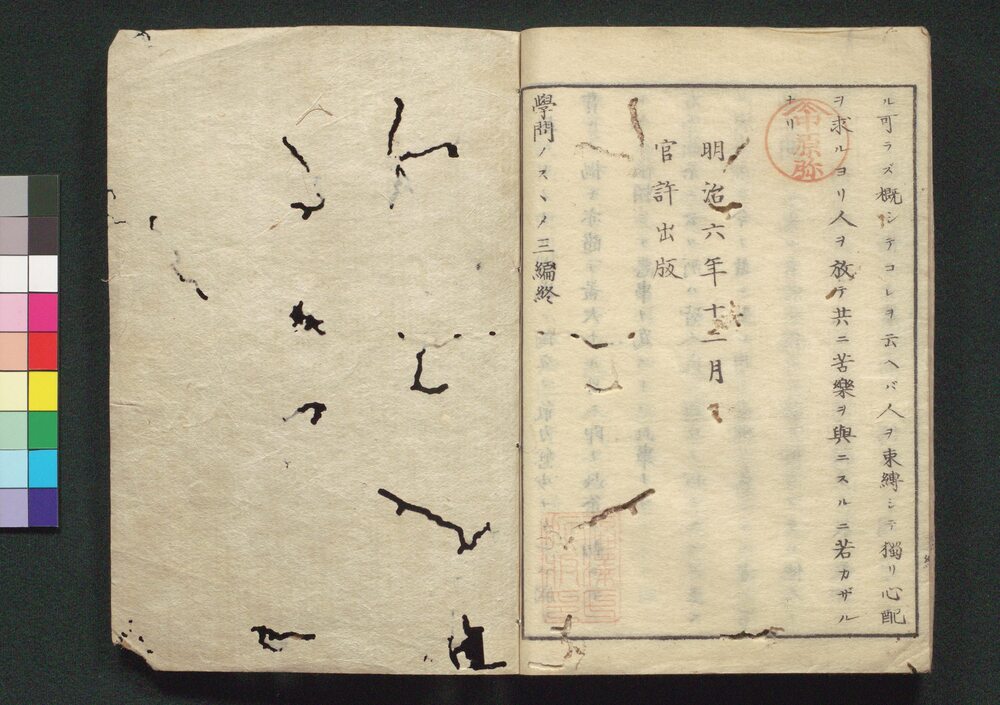 ル可ラズ概シテコレヲ云ヘバ人ヲ束縛シテ獨リ心配
ヲ求ルヨリ人ヲ放テ共ニ苦樂ヲ與ニスルニ若カザル
ナリ
中原弥
明治六年十二月
官許出版
學問ノスヽメ三編終